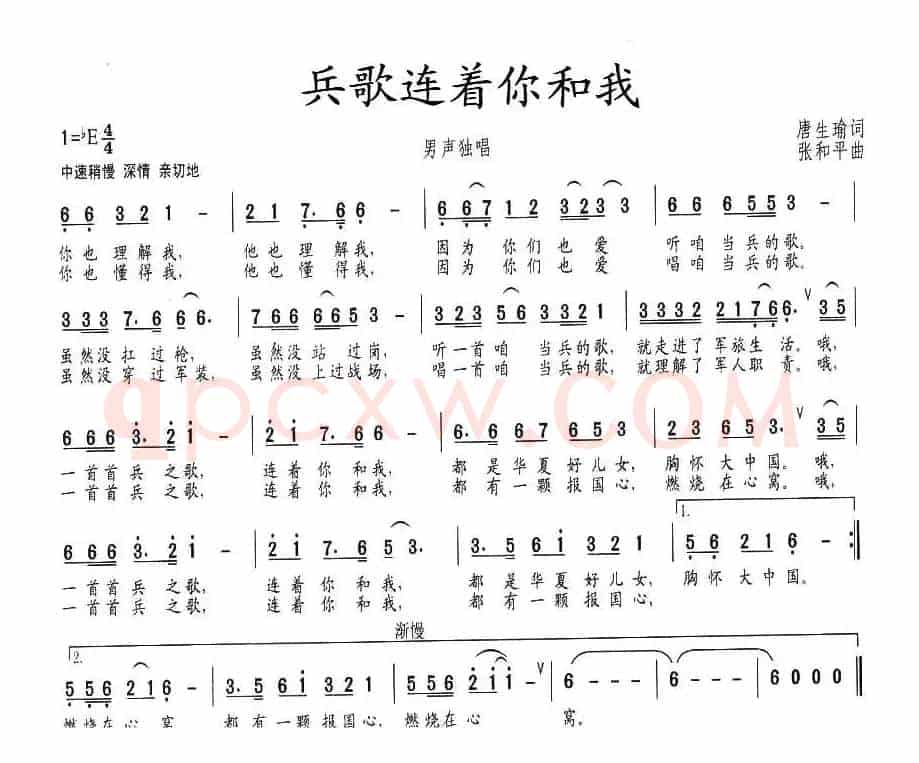 兵歌连着你和我
1=♭E 4/4
男声独唱
唐生瑜词
张和平曲
中速稍慢 深情 亲切地
6 6 3 2 1 - | 2 1 7. 6 6 - | 6 6 7 1 2 3 2 3 3 | 6 6 6 5 5 3 - |
你也理解我, 他也理解我, 因为你们也爱 听咱当兵的歌。
你也懂得我, 他也懂得我, 因为你们也爱 唱咱当兵的歌。
3 3 3 7. 6 6 6. | 7 6 6 6 6 5 3 - | 3 2 3 5 3 3 2 1 | 3 3 3 2 2 2 1 7 6 6. ∨ 3 5 |
虽然没扛过枪, 虽然没站过岗, 听一首咱 当兵的歌, 就走进了军旅生活。哦,
虽然没穿过军装, 虽然没上过战场, 唱一首咱 当兵的歌, 就理解了军人职责。哦,
6 6 6 3. 2 1 - | 2 1 7. 6 6 - | 6. 6 6 7 6 5 3 | 2 3 6 5 3. ∨ 3 5 |
一首首兵之歌, 连着你和我, 都是华夏好儿女, 胸怀大中国。哦,
一首首兵之歌, 连着你和我, 都有一颗报国心, 燃烧在心窝。哦,
1.
6 6 6 3. 2 1 - | 2 1 7. 6 5 3. | 3. 5 6 1 3 2 1 | 5 6 2 1 6 - :|
一首首兵之歌, 连着你和我, 都是华夏好儿女, 胸怀大中国。
一首首兵之歌, 连着你和我, 都有一颗报国心,
渐慢
2.
5 5 6 2 1 6 - | 3. 5 6 1 3 2 1 | 5 5 6 2 1 1 - ∨ | 6 - 6 - | 6 - - - | 6 0 0 0 ‖
燃烧在心窝 都有一颗报国心, 燃烧在心 窝。
qpcxw.com